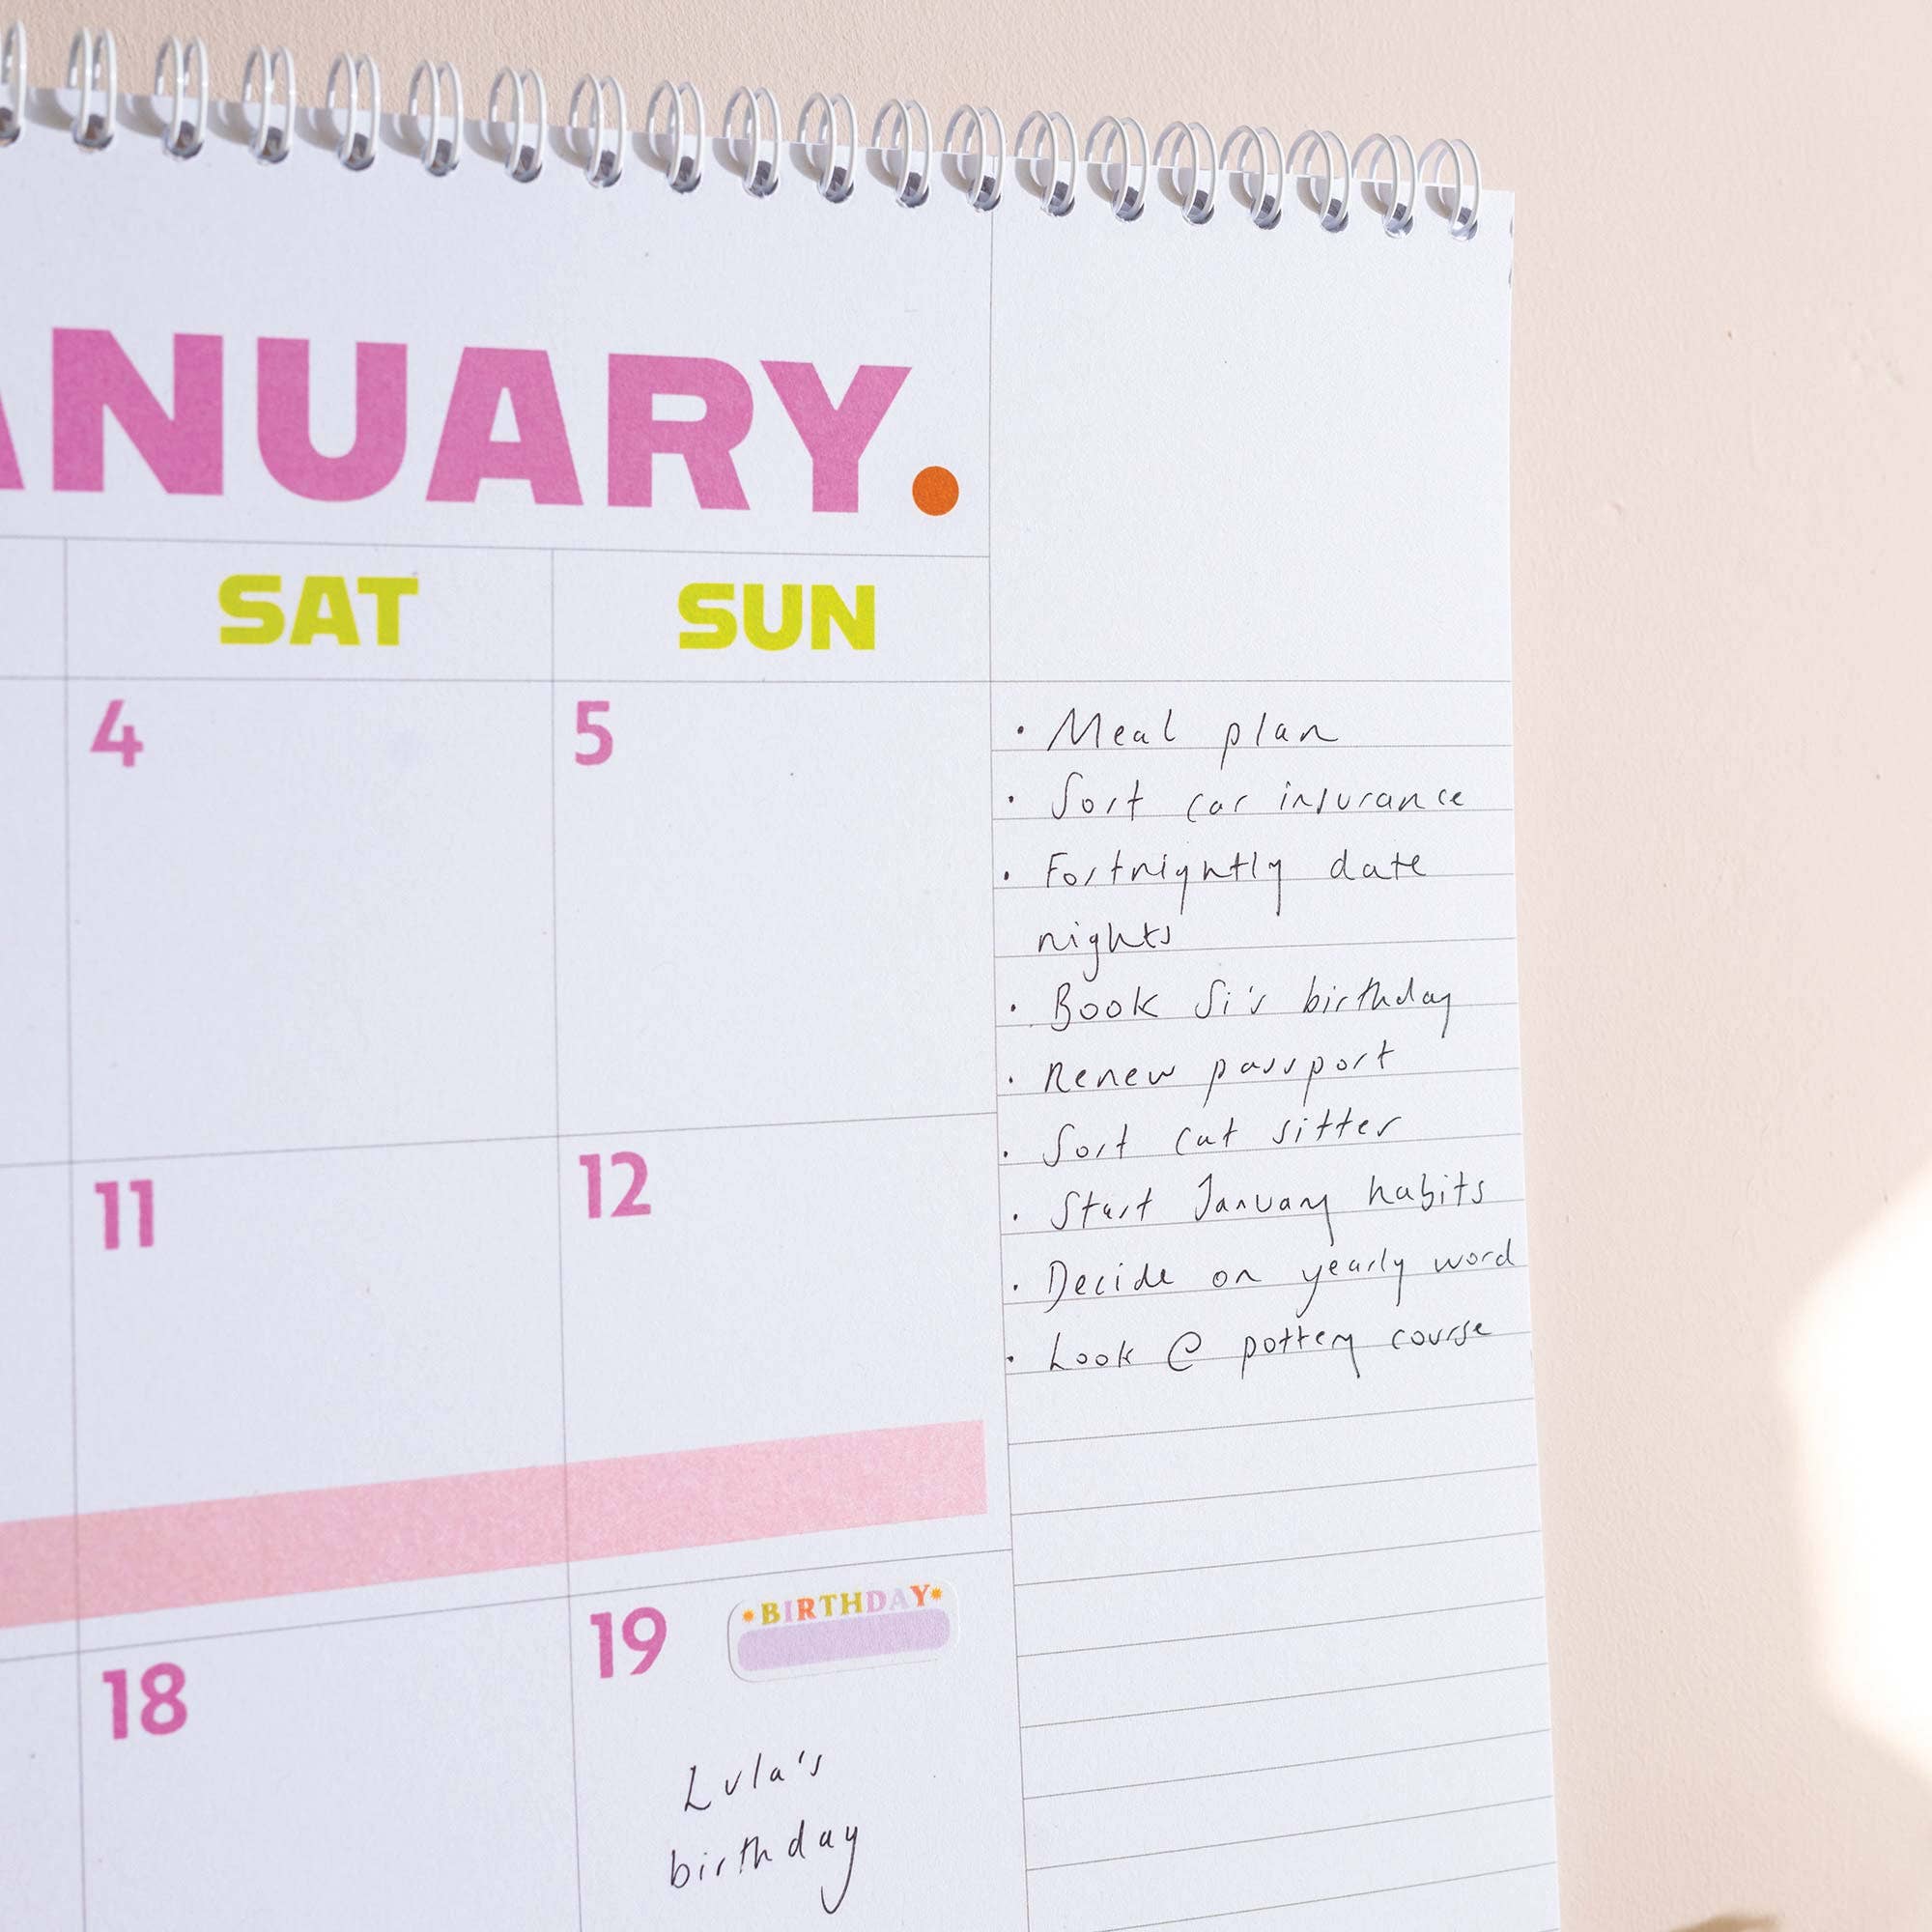 ANUARY.
SAT SUN
4 5
11 12
18 19
BIRTHDAY
Lula's
birthday
· Meal plan
· Sort car insurance
· Fortnightly date
nights
· Book Si's birthday
· Renew passport
· Sort cat sitter
· Start January habits
· Decide on yearly word
· Look @ pottery course